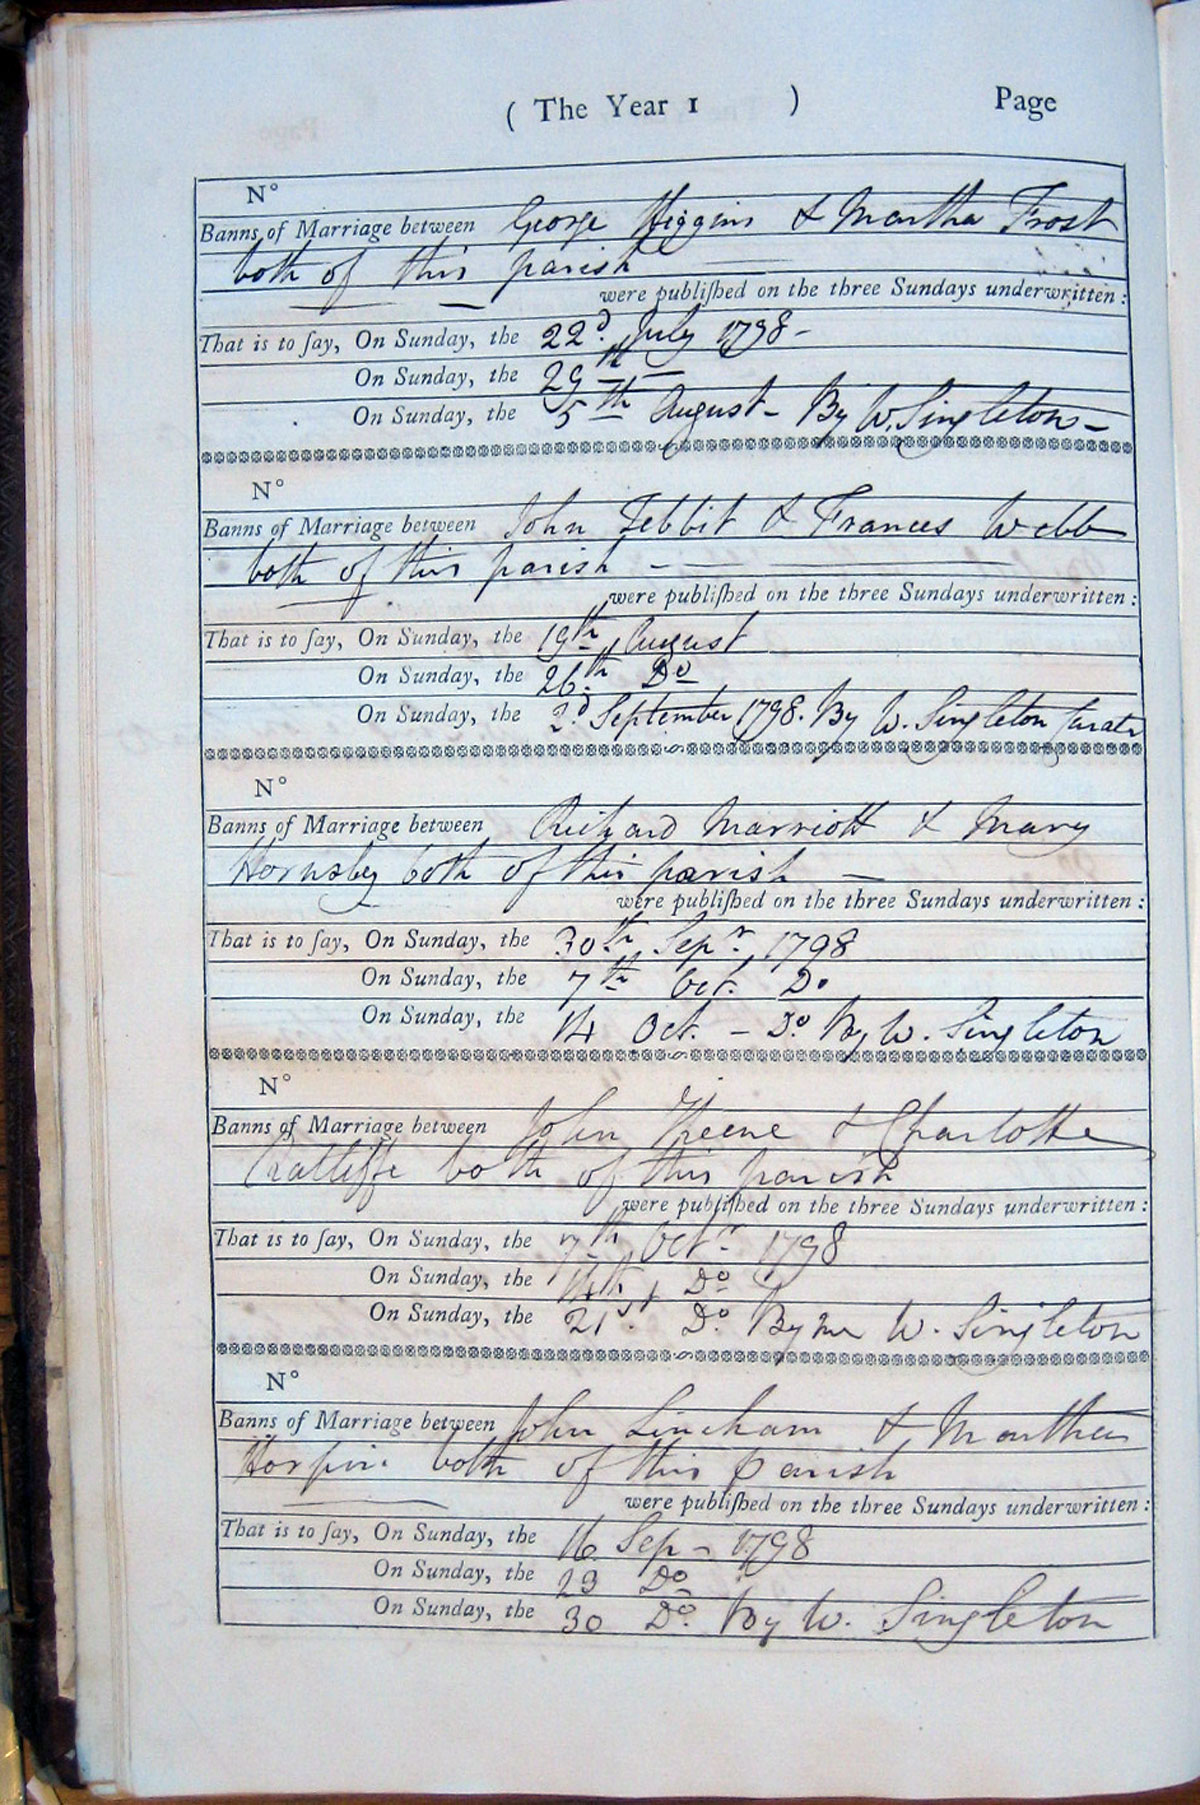 ( The Year 1 ) Page
N°
Banns of Marriage between George Higgins & Martha Frost
both of this parish
were publiſhed on the three Sundays underwritten :
That is to ſay, On Sunday, the 22d. July 1798 -
On Sunday, the 29th
On Sunday, the 5th August - By W. Singleton -
N°
Banns of Marriage between John Tebbit & Frances Webb
both of this parish -
were publiſhed on the three Sundays underwritten :
That is to ſay, On Sunday, the 19th August
On Sunday, the 26th Do
On Sunday, the 2d September 1798. By W. Singleton Curate
N°
Banns of Marriage between Richard Marriott & Mary
Hornsby both of this parish -
were publiſhed on the three Sundays underwritten :
That is to ſay, On Sunday, the 30th Sepr. 1798
On Sunday, the 7th Oct. Do
On Sunday, the 14 Oct. - Do. By W. Singleton
N°
Banns of Marriage between John Keene & Charlotte
Ratliffe both of this parish
were publiſhed on the three Sundays underwritten :
That is to ſay, On Sunday, the 7th Octr. 1798
On Sunday, the 14th Do
On Sunday, the 21st. Do. By me W. Singleton
N°
Banns of Marriage between John Lincham & Martha
both of this parish
were publiſhed on the three Sundays underwritten :
That is to ſay, On Sunday, the 16 Sep - 1798
On Sunday, the 23 Do
On Sunday, the 30 Do. By W. Singleton